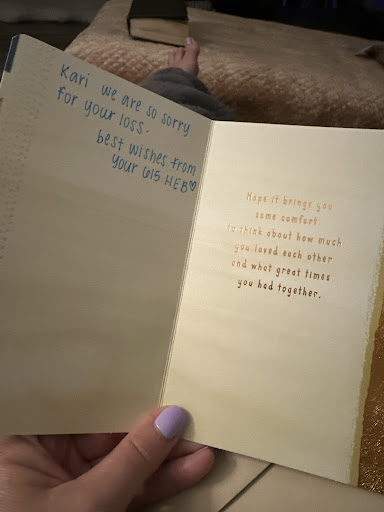 Kari we are so sorry
for your loss.
best wishes from
your 615 HEB♡
Hope it brings you
some comfort
to think about how much
you loved each other
and what great times
you had together.